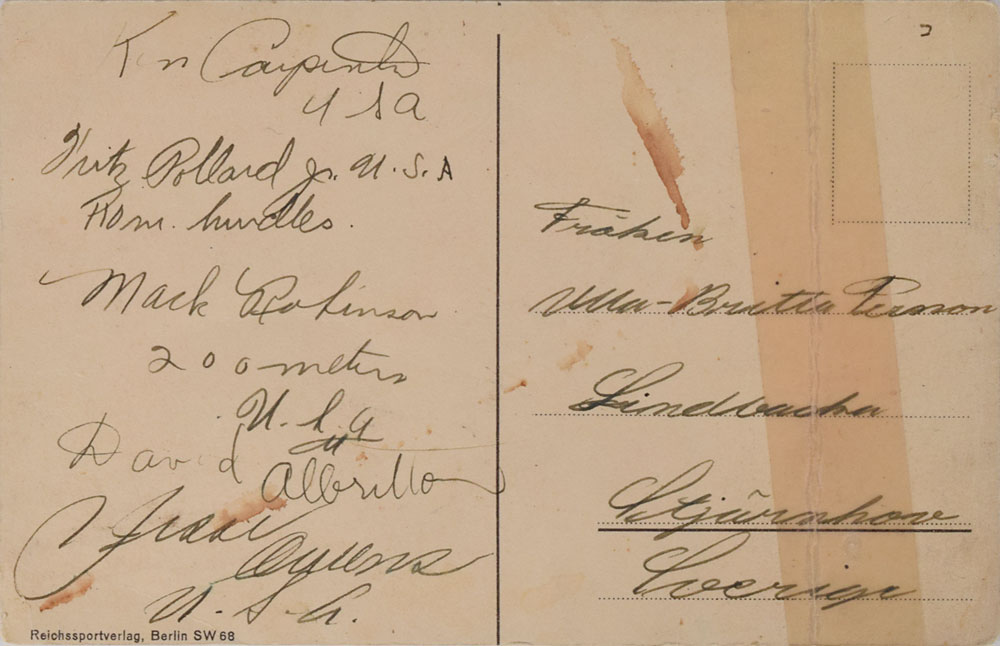 Ken Carpenter
U S A
Fritz Pollard Jr. U.S.A
110m. hurdles.
Mack Robinson
200 meters
U.S.A
David Albritton
Jesse Owens
U.S.A.
Reichssportverlag, Berlin SW 68
Fröken
Ulla-Britta Persson
Lindbacka
Stjärnhov
Sverige